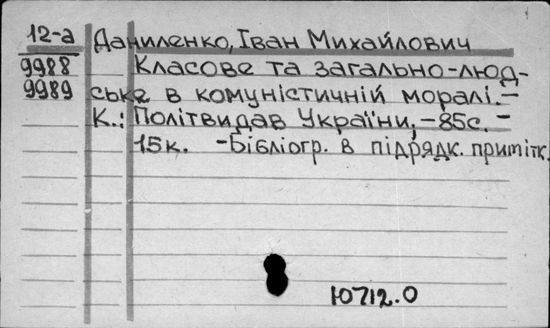 12-а Даниленко, Іван Михайлович
9988 Класове та загально-люд-
9989 ське в комуністичній моралі.-
К.: Політвидав України, -85с. -
15к. -Бібліогр. в підрядк. примітк.
Ю712.0